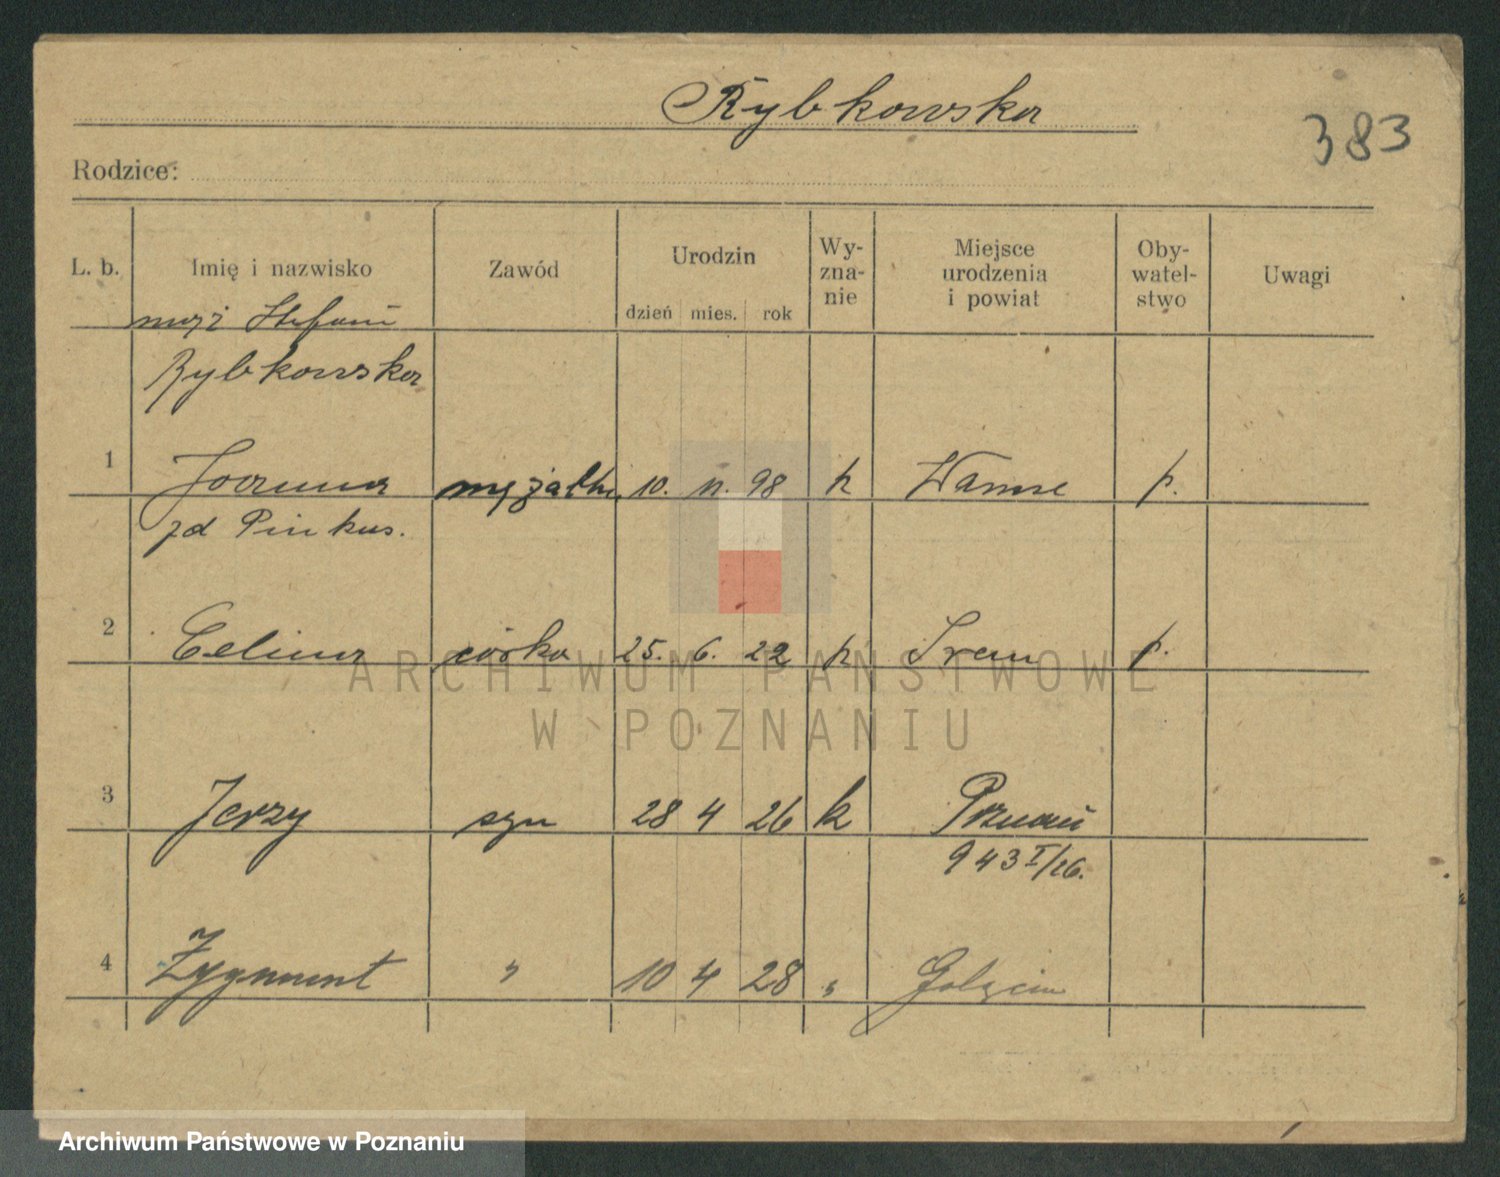 Rybkowska
383
Rodzice:
L. b. Imię i nazwisko Zawód Urodzin dzień mies. rok Wy-zna-nie Miejsce urodzenia i powiat Oby-watel-stwo Uwagi
mąż Stefan
Rybkowska
1 Joanna 10. 11. 98 k Wanne p.
zd Pinkus.
2 Celina córka 25. 6. 22 k Śrem p.
3 Jerzy syn 28 4 26 k Poznań
943 I/26.
4 Zygmunt " 10 4 28 " Golęcin
ARCHIWUM PAŃSTWOWE
W POZNANIU
Archiwum Państwowe w Poznaniu